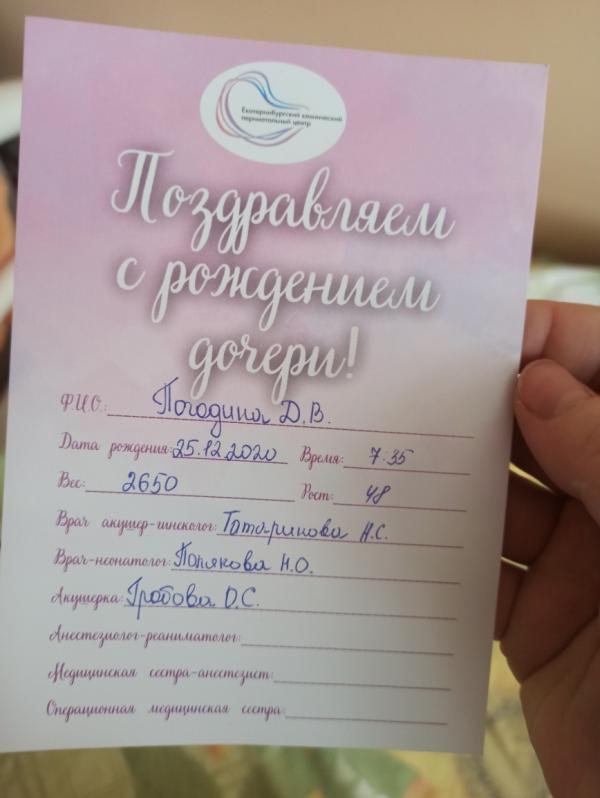 Екатеринбургский клинический
перинатальный центр
Поздравляем
с рождением
дочери!
Ф.И.О.: Погодина Д.В.
Дата рождения: 25.12.2020 Время: 7:35
Вес: 2650 Рост: 48
Врач акушер-гинсколог: Татаринова Н.С.
Врач-неонатолог: Полякова Н.О.
Акушерка: Гробова О.С.
Анестезиолог-реаниматолог:
Медицинская сестра-анестезист:
Операционная медицинская сестра: